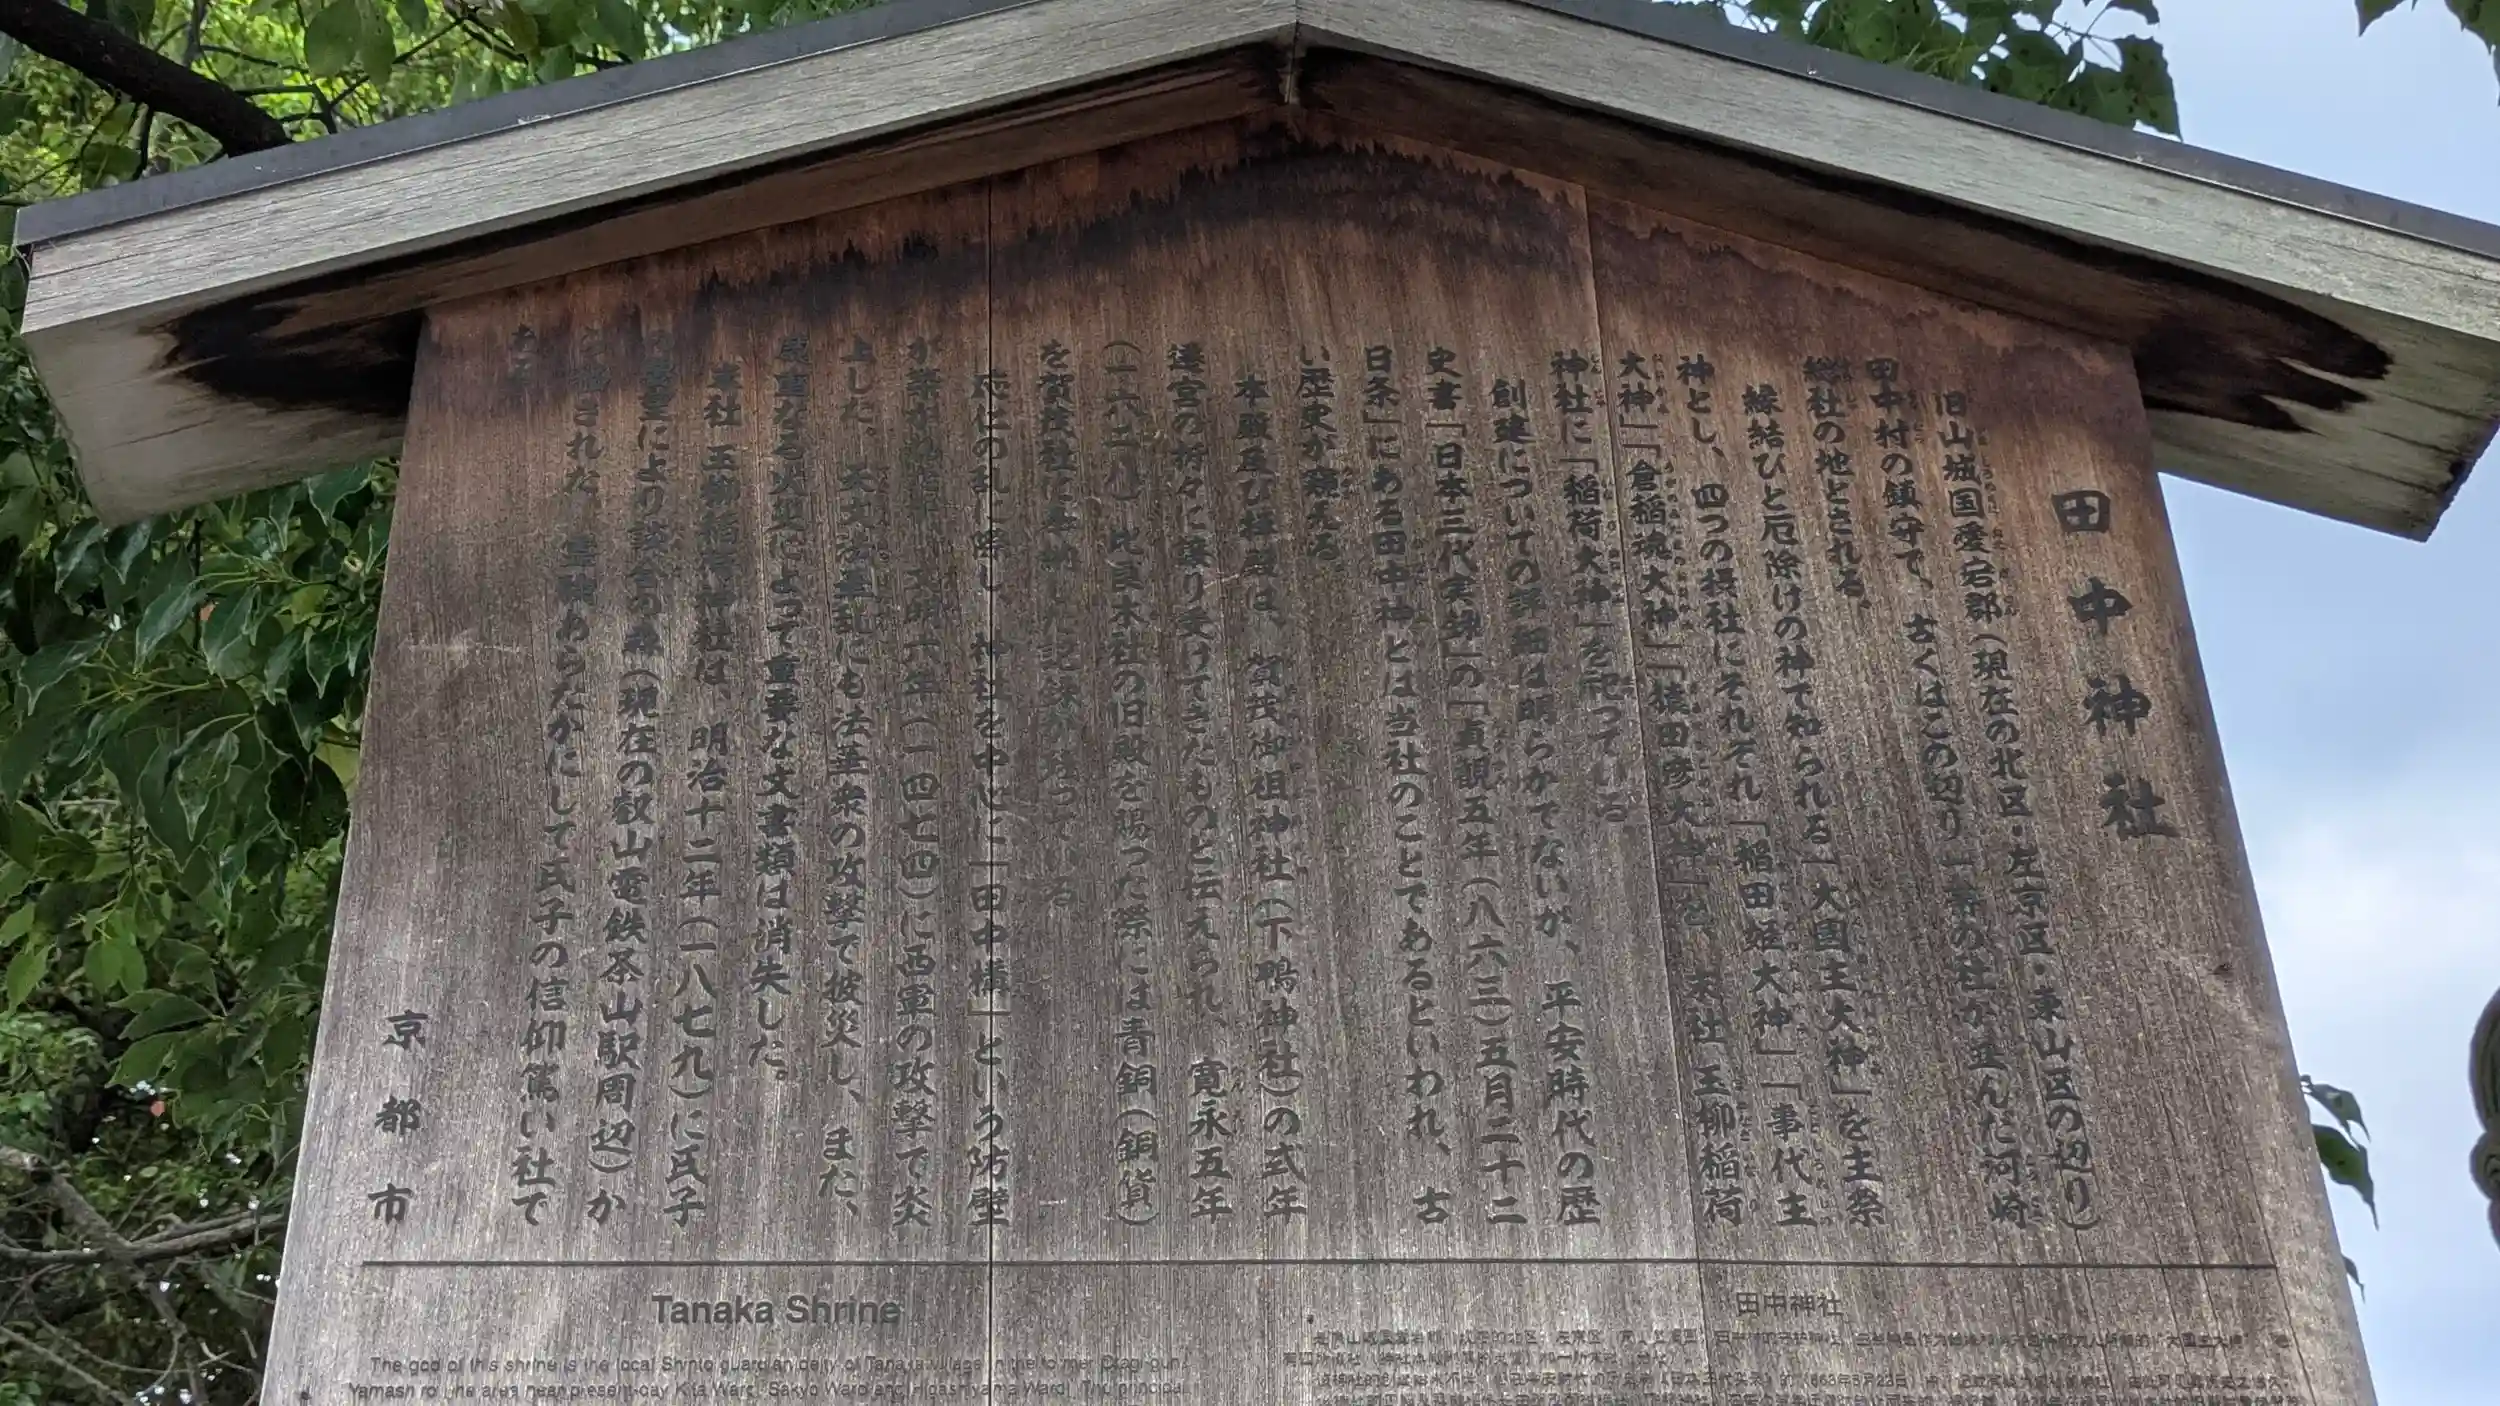 田中神社
旧山城国愛宕郡(現在の北区・左京区・東山区の辺り)
田中村の鎮守で、古くはこの辺り一帯の社が並んだ河崎
総社の地とされる。
縁結びと厄除けの神で知られる「大国主大神」を主祭
神とし、四つの摂社にそれぞれ「稲田姫大神」「事代主
大神」「倉稲魂大神」「猿田彦大神」を、末社 玉柳稲荷
神社に「稲荷大神」を祀っている。
創建についての詳細は明らかでないが、平安時代の歴
史書「日本三代実録」の「貞観五年(八六三)五月二十二
日条」にある田中神とは当社のことであるといわれ、古
い歴史が窺える。
本殿及び拝殿は、賀茂御祖神社(下鴨神社)の式年
遷宮の折々に譲り受けてきたものと伝えられ、寛永五年
(一六二八)比良木社の旧殿を賜った際には青銅(銅貨)
を賀茂社に奉納した記録が残っている。
応仁の乱に際し、神社を中心に「田中構」という防壁
が築かれ 文明六年(一四七四)に西軍の攻撃で炎
上した。天文法華乱にも法華衆の攻撃で被災し、また、
度重なる火災によって重要な文書類は消失した。
末社 玉柳稲荷神社は、明治十二年(一八七九)に氏子
により 森(現在の叡山電鉄茶山駅周辺)か
された。霊験あらたかにして氏子の信仰篤い社で
ある。
京都市
Tanaka Shrine
The god of this shrine is the local Shinto guardian deity of Tanaka village in the former Otagi-gun,
Yamashiro (the area near present-day Kita Ward, Sakyo Ward and Higashiyama Ward). The principal
田中神社